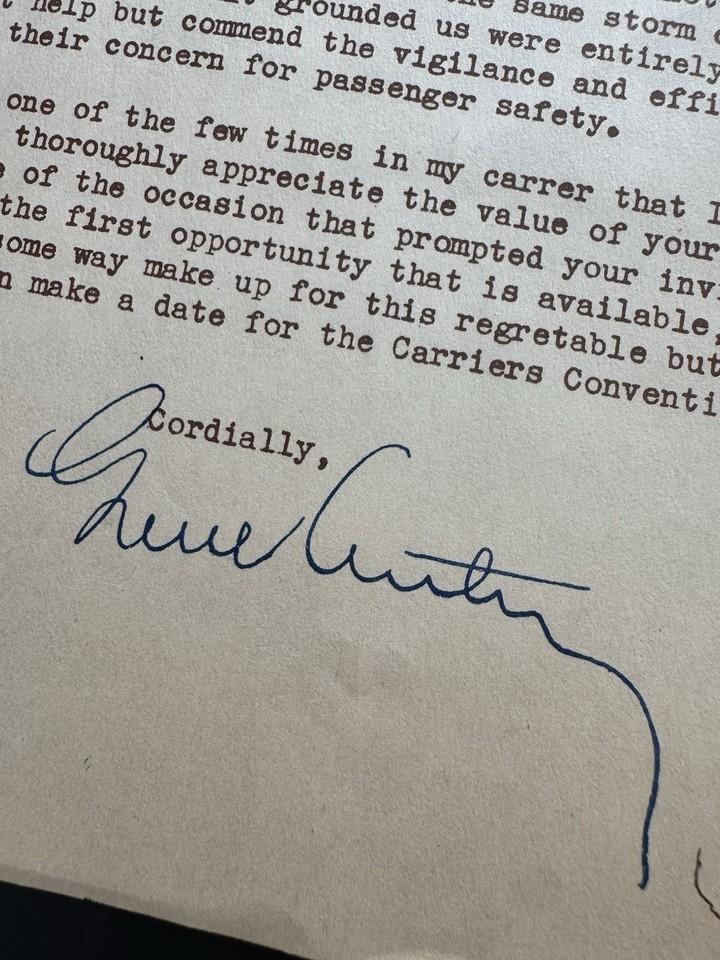 the same storm
help but commend the vigilance and
grounded us were entirely
their concern for passenger safety.
one of the few times in my carrer that I
thoroughly appreciate the value of your
of the occasion that prompted your
the first opportunity that is available,
some way make up for this regretable but
make a date for the Carriers
Cordially,
Gene Autry